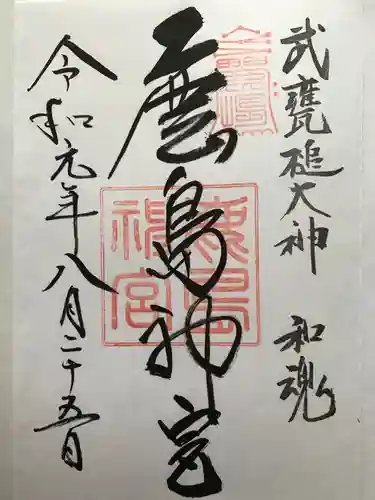 武甕槌大神 和魂
鹿島神宮
令和元年八月二十五日
鹿島神宮